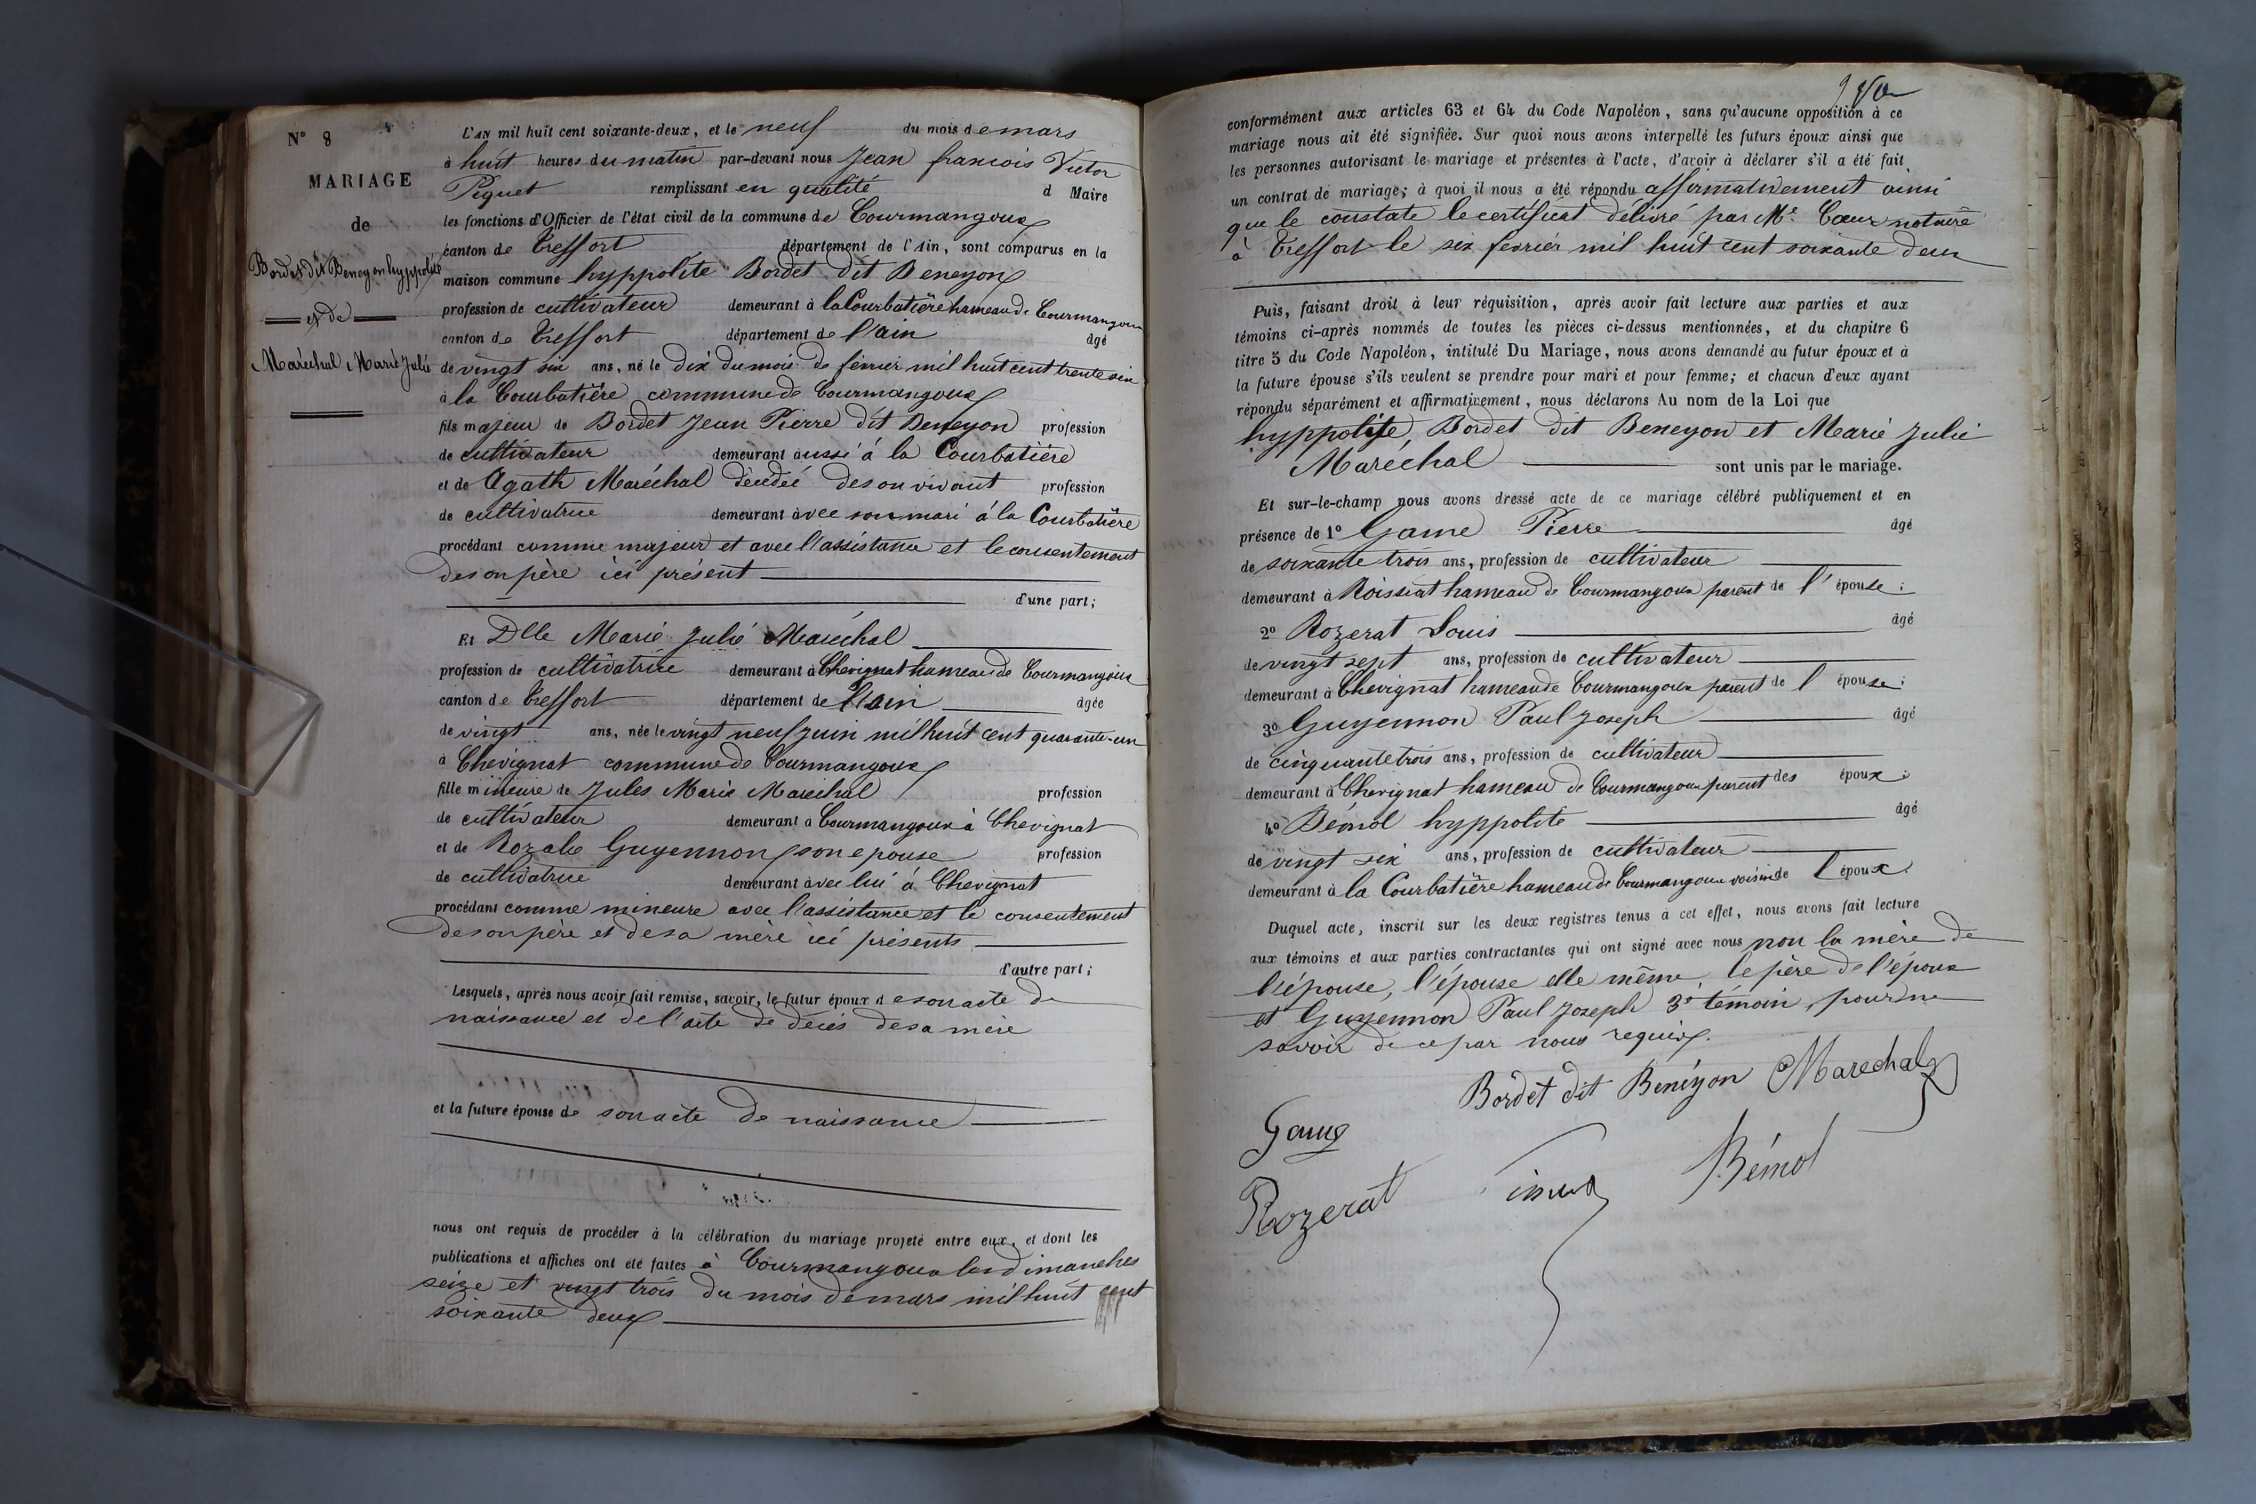 N° 8
MARIAGE
de
Bordet dit Beneyon hyppolite
et de
Maréchal Marie Julie
L'AN mil huit cent soixante-deux, et le neuf du mois de mars
à huit heures du matin par-devant nous Jean francois Victor
Piquet remplissant en qualité d Maire
les fonctions d'Officier de l'état civil de la commune de Courmangoux
canton de Treffort département de l'Ain, sont comparus en la
maison commune hyppolite Bordet dit Beneyon
profession de cultivateur demeurant à la Courbatière hameau de Courmangoux
canton de Treffort département de l'ain âgé
de vingt six ans, né le dix du mois de février mil huit cent trente six
à la Courbatière commune de Courmangoux
fils majeur de Bordet Jean Pierre dit Beneyon profession
de cultivateur demeurant aussi à la Courbatière
et de Agath Maréchal dècedéé de son vivant profession
de cultivatrice demeurant avec son mari à la Courbatière
procédant comme majeur et avec l'assistance et le consentement
de son père ici présent
d'une part;
Et Dlle Marie Julie Maréchal
profession de cultivatrice demeurant à Chevignat hameau de Courmangoux
canton de Treffort département de l'ain âgée
de vingt ans, née le vingt neuf juin mil huit cent quarante-un
à Chevignat commune de Courmangoux
fille mineure de Jules Marie Maréchal profession
de cultivateur demeurant à Courmangoux à Chevignat
et de Rozalie Guyennon son epouse profession
de cultivatrice demeurant avec lui à Chevignat
procédant comme mineure avec l'assistance et le consentement
de son père et de sa mère ici présents
d'autre part;
Lesquels, après nous avoir fait remise, savoir, le futur époux de son acte de
naissance et de l'acte de décés de sa mère
et la future épouse de son acte de naissance
nous ont requis de procéder à la célébration du mariage projeté entre eux, et dont les
publications et affiches ont été faites à Courmangoux les dimanches
seize et vingt trois du mois de mars mil huit cent
soixante deux
conformément aux articles 63 et 64 du Code Napoléon, sans qu'aucune opposition à ce
mariage nous ait été signifiée. Sur quoi nous avons interpellé les futurs époux ainsi que
les personnes autorisant le mariage et présentes à l'acte, d'avoir à déclarer s'il a été fait
un contrat de mariage; à quoi il nous a été répondu affirmativement ainsi
que le constate le certificat délivré par Me Cœur notaire
à Treffort le six fevriér mil huit cent soixante deux
Puis, faisant droit à leur réquisition, après avoir fait lecture aux parties et aux
témoins ci-après nommés de toutes les pièces ci-dessus mentionnées, et du chapitre 6
titre 5 du Code Napoléon, intitulé Du Mariage, nous avons demandé au futur époux et à
la future épouse s'ils veulent se prendre pour mari et pour femme; et chacun d'eux ayant
répondu séparément et affirmativement, nous déclarons Au nom de la Loi que
hyppolite Bordet dit Beneyon et Marie Julie
Maréchal sont unis par le mariage.
Et sur-le-champ nous avons dressé acte de ce mariage célébré publiquement et en
présence de 1° Game Pierre âgé
de soixante trois ans, profession de cultivateur
demeurant à Roissiat hameau de Courmangoux parent de l'épouse;
2° Rozerat Louis âgé
de vingt sept ans, profession de cultivateur
demeurant à Chevignat hameau de Courmangoux parent de l'épouse;
3° Guyennon Paul Joseph âgé
de cinquante trois ans, profession de cultivateur
demeurant à Chevignat hameau de Courmangoux parent des époux;
4° Bémol hyppolite âgé
de vingt six ans, profession de cultivateur
demeurant à la Courbatière hameau de Courmangoux voisin de l'époux.
Duquel acte, inscrit sur les deux registres tenus à cet effet, nous avons fait lecture
aux témoins et aux parties contractantes qui ont signé avec nous non la mère de
l'épouse, l'épouse elle même, le père de l'époux
et Guyennon Paul Joseph 3° témoin, pour ne
savoir de ce par nous requis.
Bordet dit Benéyon Marechal
Game
Rozerat Bémol